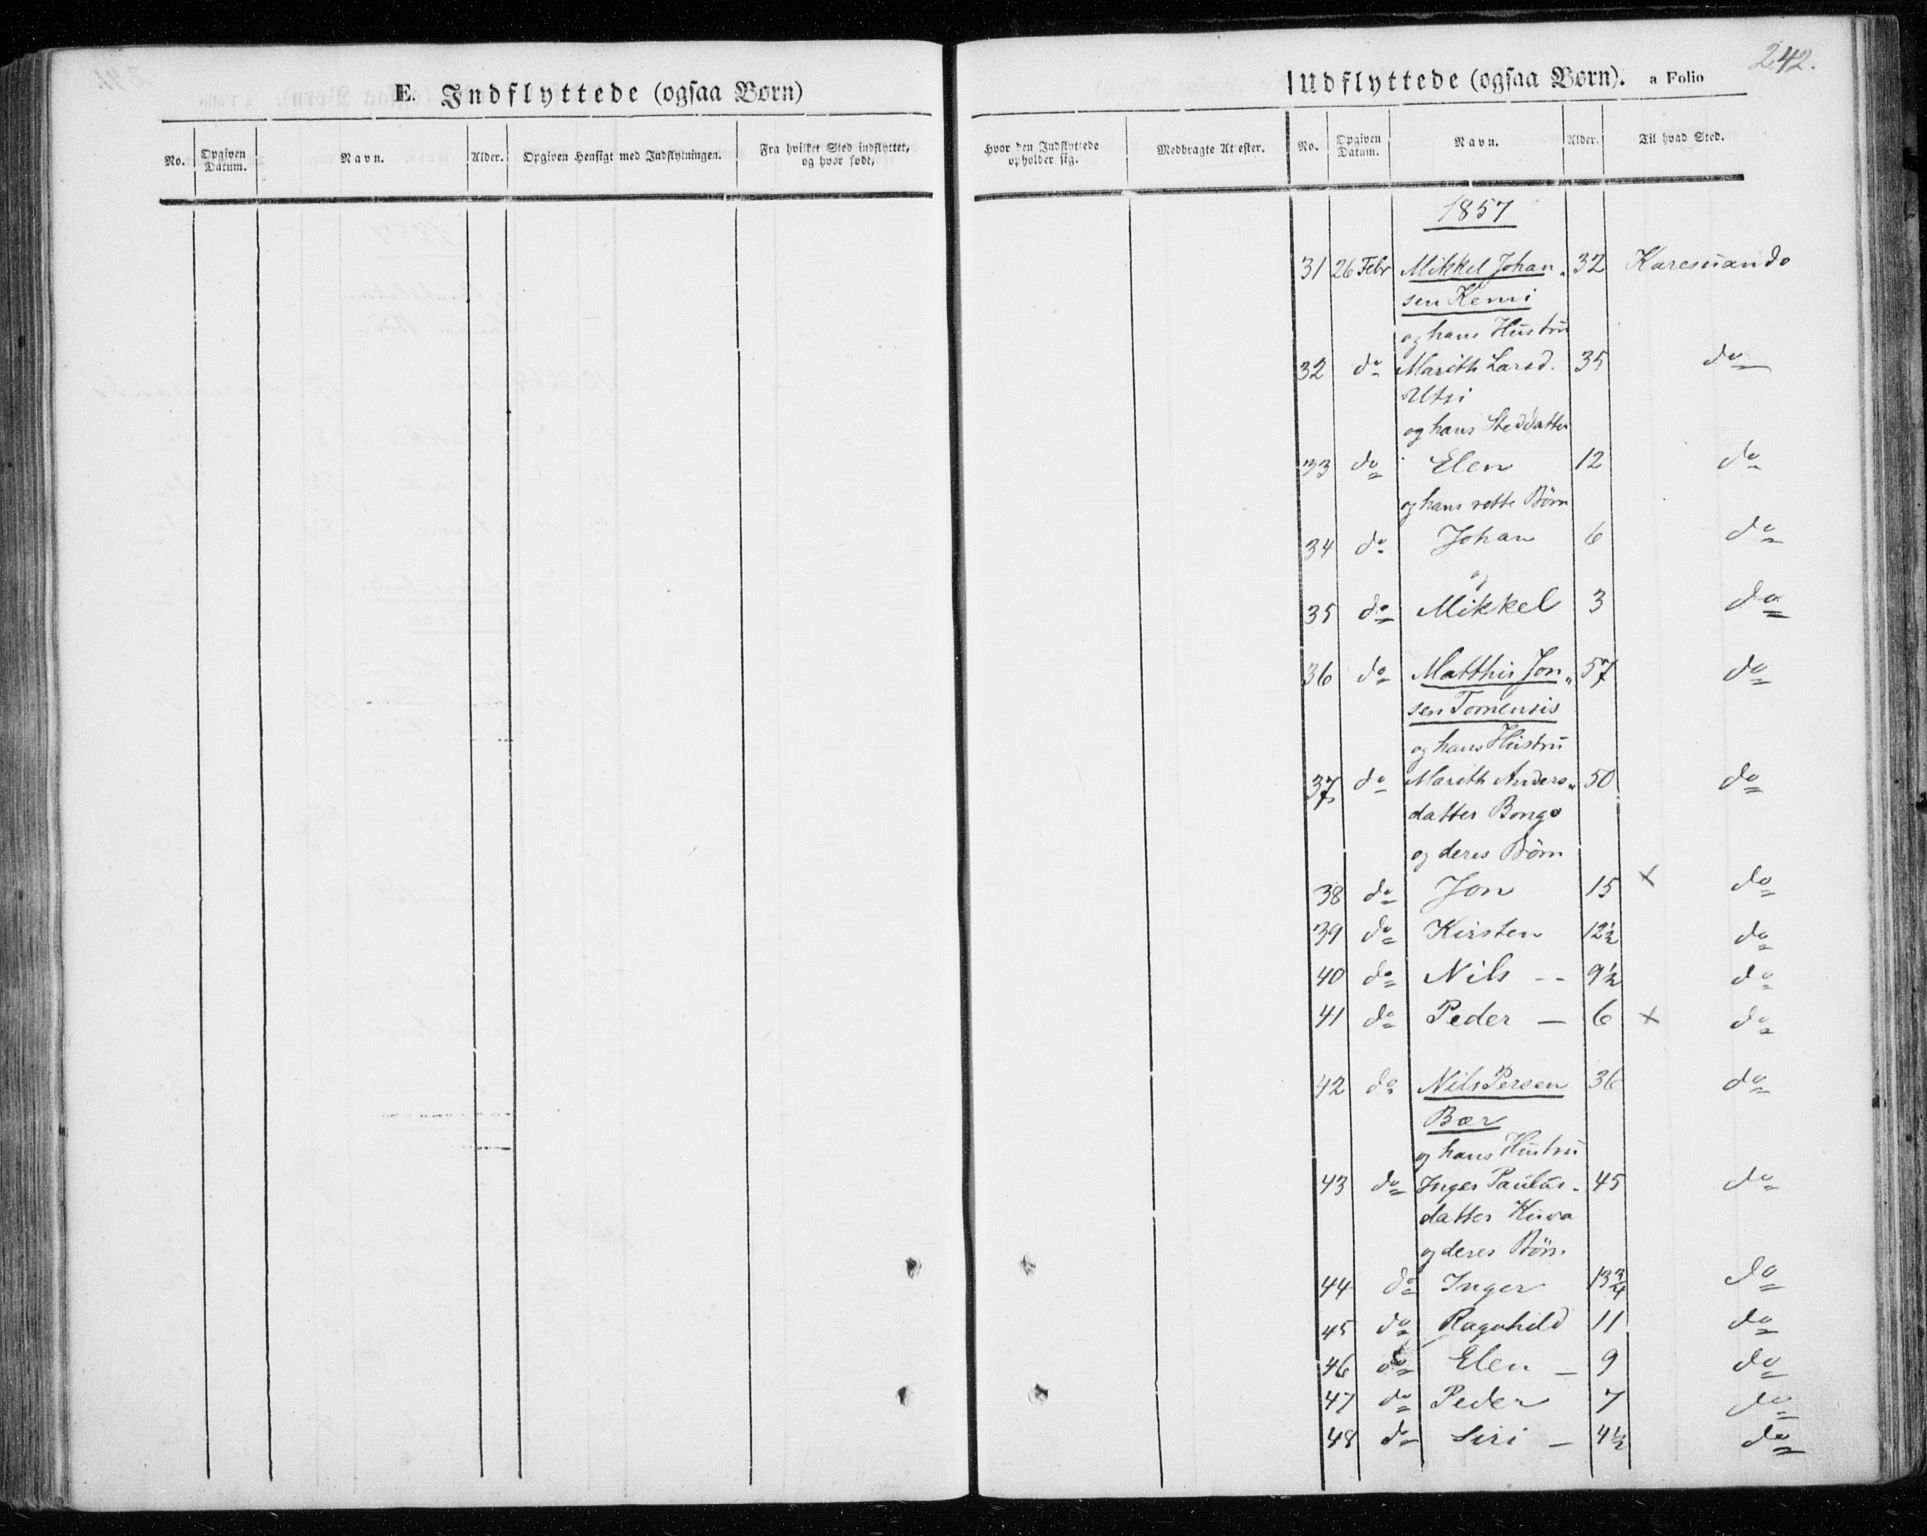 242.
E. Indflyttede (ogsaa Børn)
No.
Opgiven Datum.
Navn.
Alder.
Opgiven Hensigt med Indflytningen.
Fra hvilket Sted indflyttet, og hvor født,
Hvor den Indflyttede opholder sig.
Medbragte Attester.
Udflyttede (ogsaa Børn). a Folio
No.
Opgiven Datum.
Navn.
Alder.
Til hvad Sted.
1857
31 26 Febr Mikkel Johan„ 32 Karesuando
sen Kemi
og hans Hustru
32 do Marith Larsd. 35 do
Utsi
og hans Steddatter
33 do Elen 12 do
og hans rette Børn
34 do Johan 6 do
og
35 do Mikkel 3 do
36 do Matthis Jon„ 57 do
sen Tornensis
og hans Hustru
37 do Marith Anders„ 50 do
datter Bongo
og deres Børn
38 do Jon 15 x do
39 do Kirsten 12½ do
40 do Nils -- 9½ do
41 do Peder — 6 x do
42 do Nils Persen 36 do
Bær
og hans Hustru
43 do Inger Paulus- 45 do
datter Kuva
og deres Børn
44 do Inger 13¾ do
45 do Ragnhild 11 do
46 do Elen — 9 do
47 do Peder 7 do
48 do Siri — 4½ do